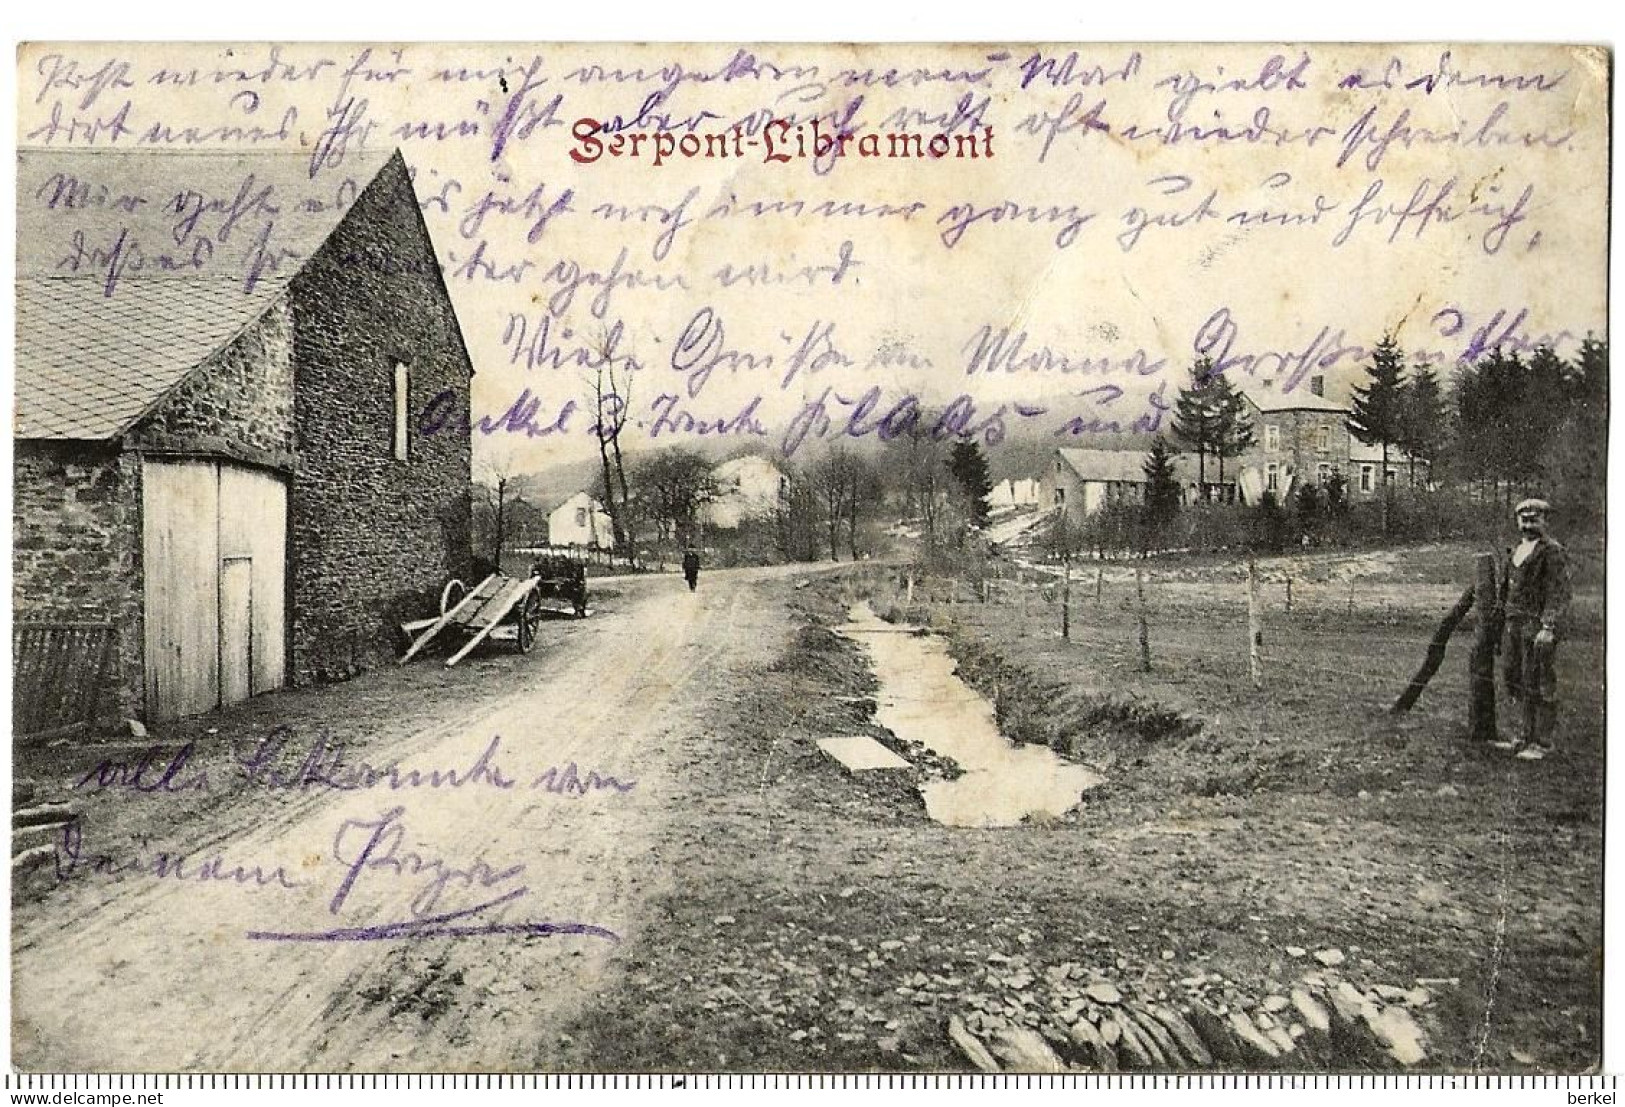 Post wieder für mich angekommen. Was giebt es denn
dort neues. Ihr müßt aber auch recht oft wieder schreiben.
Serpont-Libramont
Mir geht es bis jetzt noch immer ganz gut und hoffe ich,
daß es so weiter gehen wird.
Viele Grüße an Mama, Großmutter
Onkel u. Tante Klaas und
alle Bekannte von
Deinem Papa
berkel